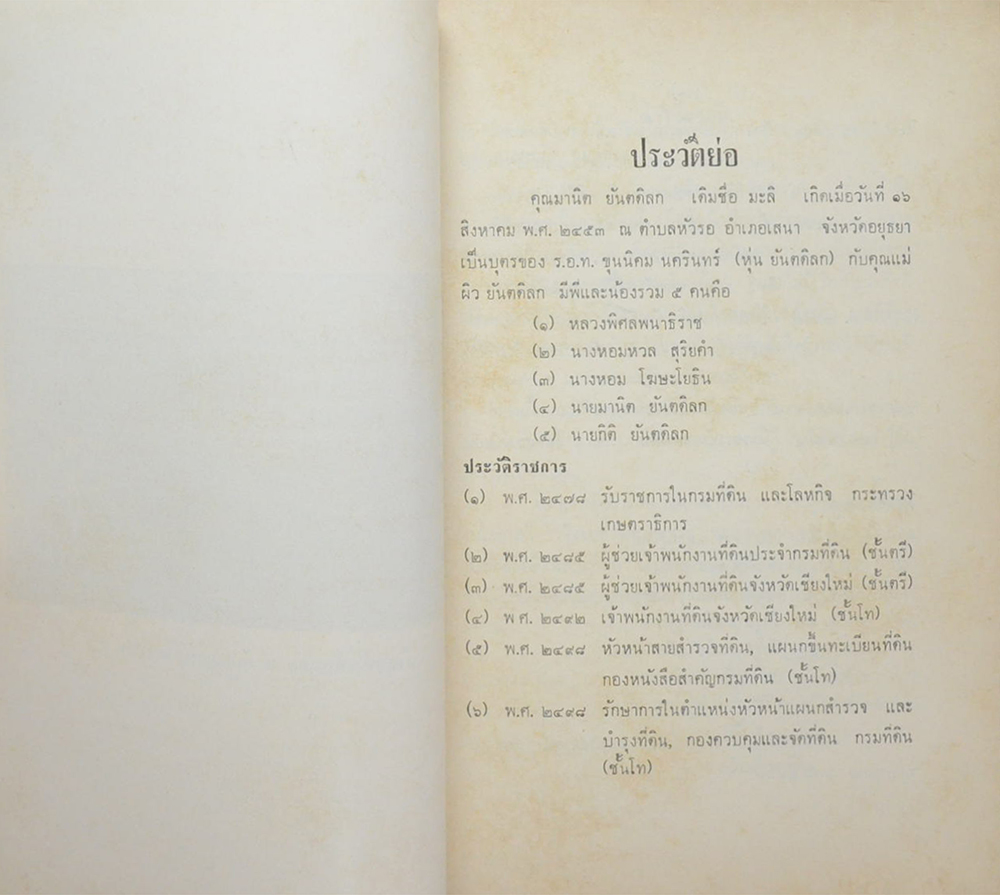 ประวัติย่อ
คุณมานิต ยันตดิลก เดิมชื่อ มะลิ เกิดเมื่อวันที่ ๑๖
สิงหาคม พ.ศ. ๒๔๕๓ ณ ตำบลหัวรอ อำเภอเสนา จังหวัดอยุธยา
เป็นบุตรของ ร.อ.ท. ขุนนิคม นครินทร์ (หุ่น ยันตดิลก) กับคุณแม่
ผิว ยันตดิลก มีพี่และน้องรวม ๕ คนคือ
(๑) หลวงพิศลพนาธิราช
(๒) นางหอมหวล สุริยคำ
(๓) นางหอม โฆษะโยธิน
(๔) นายมานิต ยันตดิลก
(๕) นายกิติ ยันตดิลก
ประวัติราชการ
(๑) พ.ศ. ๒๔๗๘ รับราชการในกรมที่ดิน และโลหกิจ กระทรวง
เกษตราธิการ
(๒) พ.ศ. ๒๔๘๕ ผู้ช่วยเจ้าพนักงานที่ดินประจำกรมที่ดิน (ชั้นตรี)
(๓) พ.ศ. ๒๔๘๕ ผู้ช่วยเจ้าพนักงานที่ดินจังหวัดเชียงใหม่ (ชั้นตรี)
(๔) พ ศ. ๒๔๙๒ เจ้าพนักงานที่ดินจังหวัดเชียงใหม่ (ชั้นโท)
(๕) พ.ศ. ๒๔๙๘ หัวหน้าสายสำรวจที่ดิน, แผนกขึ้นทะเบียนที่ดิน
กองหนังสือสำคัญกรมที่ดิน (ชั้นโท)
(๖) พ.ศ. ๒๔๙๘ รักษาการในตำแหน่งหัวหน้าแผนกสำรวจ และ
บำรุงที่ดิน, กองควบคุมและจัดที่ดิน กรมที่ดิน
(ชั้นโท)